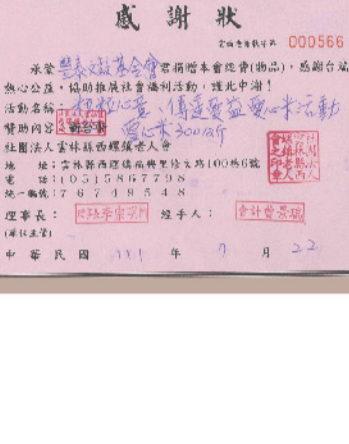 感謝狀
000566
承蒙 豐泰文教基金會 君捐贈本會經費(物品),感謝台端
熱心公益,協助推展社會福利活動,謹此申謝!
活動名稱:粒粒心愛、傳遞愛益愛心米活動
贊助內容 愛心米300台斤
社團法人雲林縣西螺鎮老人會
地 址:雲林縣西螺鎮福興里修文路100巷6號
電 話:(05)5867798
統一編號:76749548
理事長: 經手人: 會計曾景瑞
(單位主管)
中華民國 111 年 7 月 22